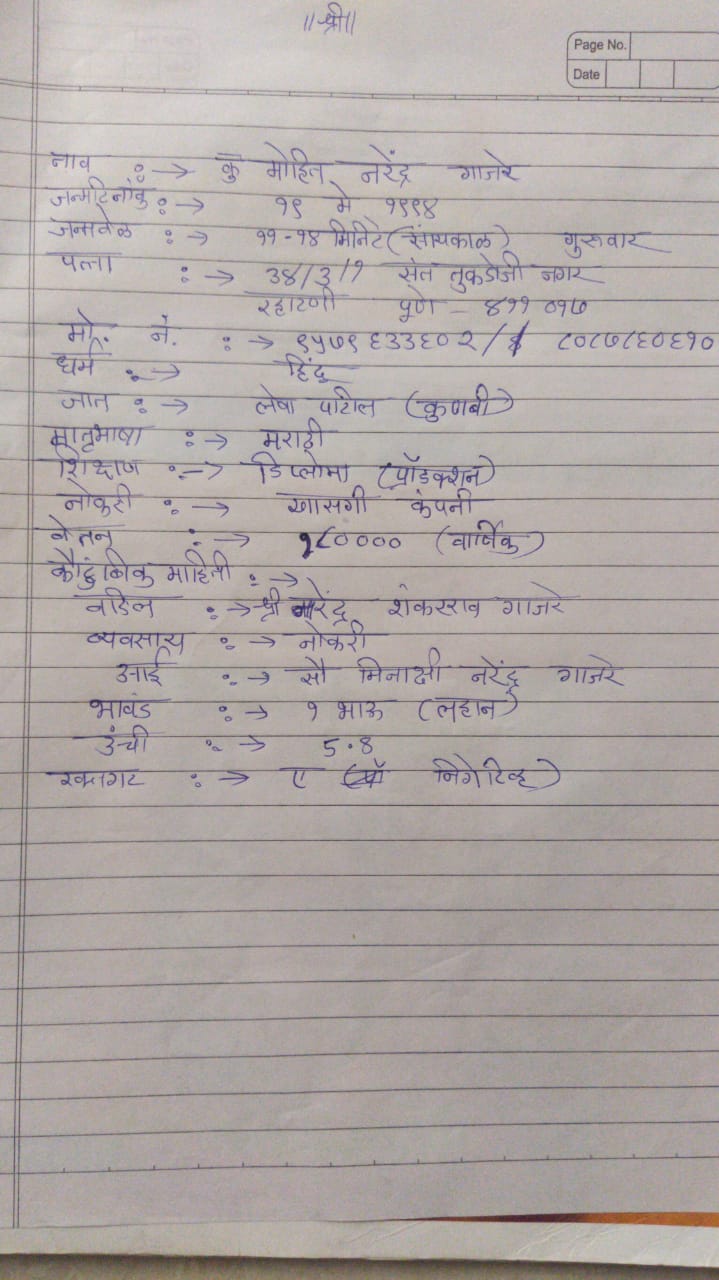 ॥श्री॥
Page No.
Date
नाव :→ कु मोहित नरेंद्र गाजरे
जन्मदिनांक :→ १९ मे १९९४
जन्मवेळ :→ ११-१४ मिनिटे (सांयकाळ) गुरूवार
पत्ता :→ ३४/३/१ संत तुकडोजी नगर
रहाटणी पूणे - ४११ ०१७
मो. नं. :→ ९५७९६३३६०२ / ८०८७८६०६१०
धर्म :→ हिंदू
जात :→ लेवा पाटिल (कुणबी)
मातृभाषा :→ मराठी
शिक्षण :→ डिप्लोमा (प्रॉडक्शन)
नोकरी :→ खासगी कंपनी
वेतन :→ १८०००० (वार्षिक)
कौटुंबिक माहिती :→
वडिल :→ श्री नरेंद्र शंकरराव गाजरे
व्यवसाय :→ नोकरी
आई :→ सौ मिनाक्षी नरेंद्र गाजरे
भावंड :→ १ भाऊ (लहान)
उंची :→ 5.8
रक्तगट :→ ए ( निगेटिव्ह)